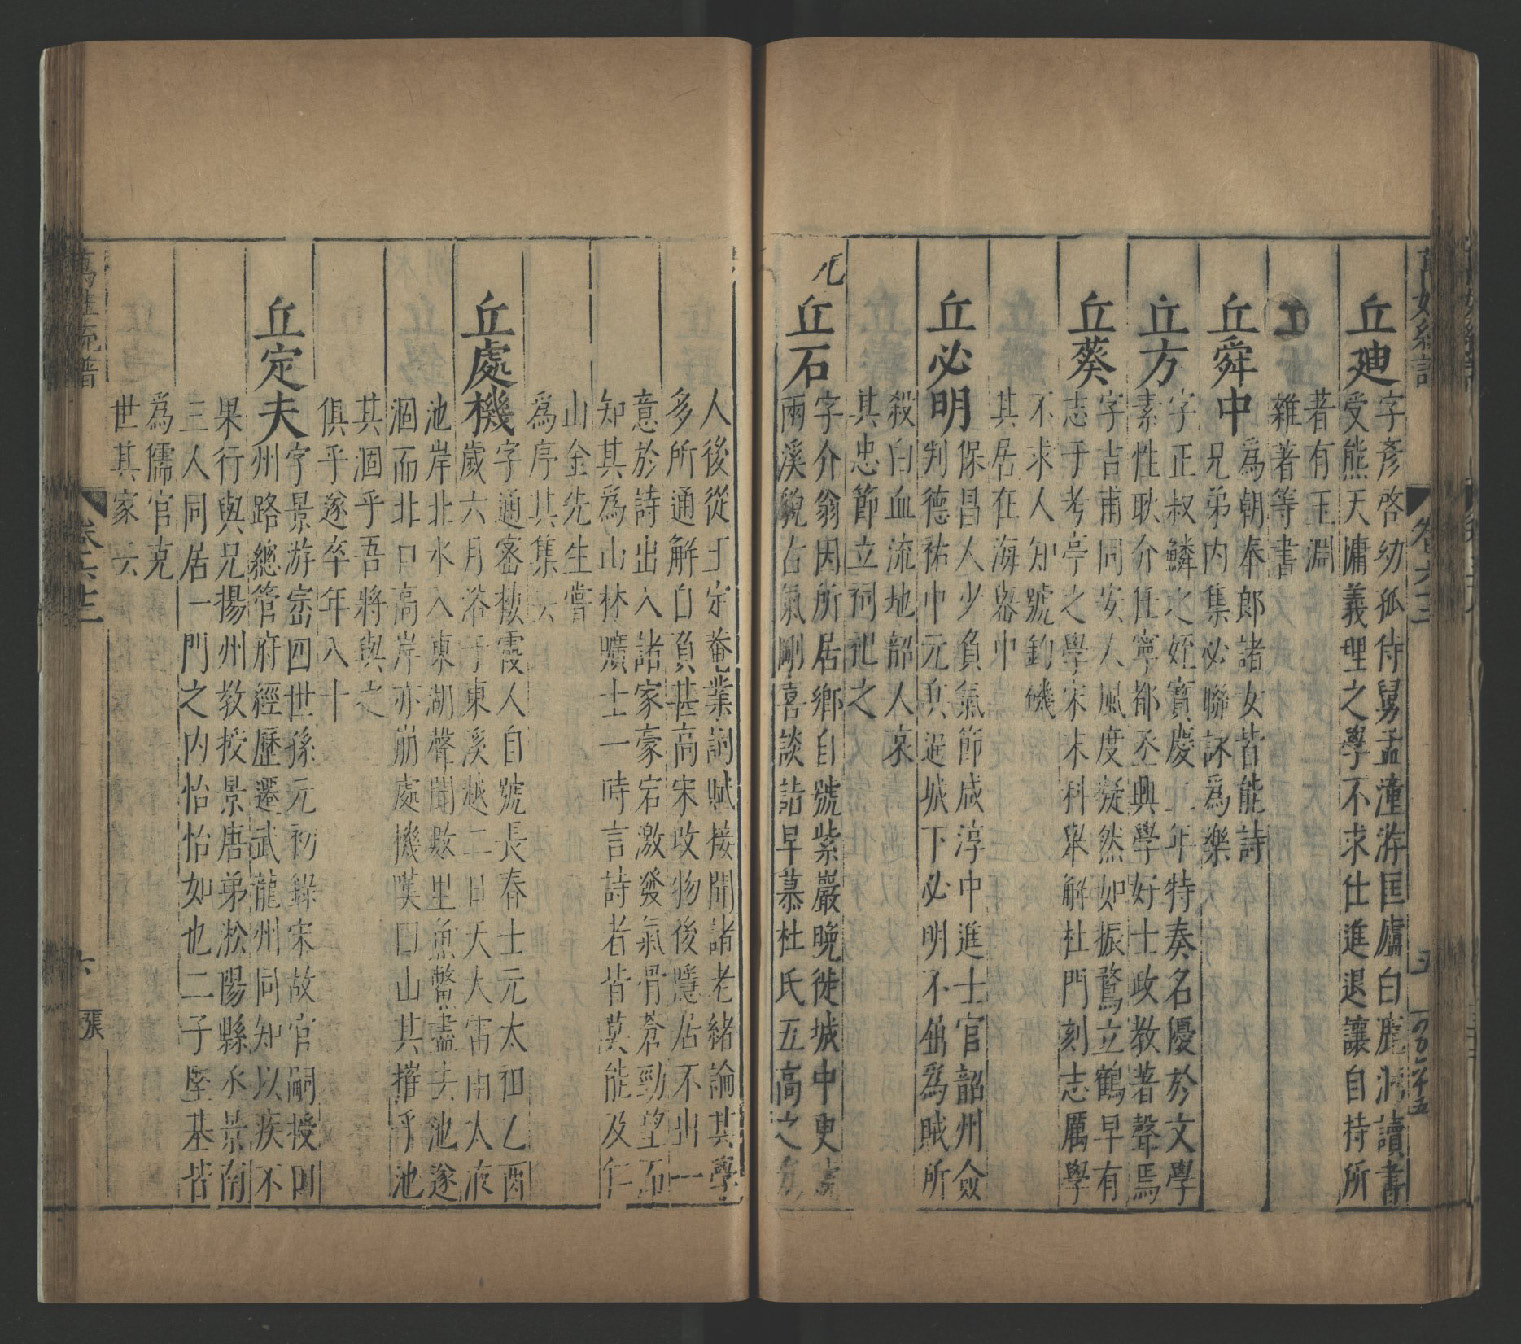 萬姓統譜 卷六十二 五
丘迪 字彥啓幼孤侍舅孟潼游匡廬白鹿洞讀書
受熊天慵義理之學不求仕進退讓自持所
著有玉淵
雜著等書
丘舜中 為朝奉郎諸女皆能詩
兄弟内集必聯詠為樂
丘方 字正叔鱗之姪寶慶二年特奏名優於文學
素性耿介任寧都丞興學好士政教著聲焉
丘葵 字吉甫同安人風度凝然如振鷺立鶴早有
志于考亭之學宋末科舉解杜門刻志厲學
不求人知號釣磯
其居在海嶼中
丘必明 保昌人少負氣節咸淳中進士官韶州僉
判德祐中元兵逼城下必明不屈為賊所
殺白血流地韶人哀
其忠節立祠祀之
元 丘石 字介翁因所居鄉自號紫巖晚徙城中更
兩溪貌古氣剛喜談詰早慕杜氏五高之
人後從王定菴業詞賦接聞諸老緒論其學
多所通解自負甚高宋改物後隱居不出一
意於詩出入諸家豪宕激發氣骨蒼勁望而
知其為山林曠士一時言詩者皆莫能及仁
山金先生嘗
為序其集云
丘處機 字通密棲霞人自號長春士元太祖乙酉
歲六月浴于東溪越二日天大雷雨太液
池岸北水入東湖聲聞數里魚鱉盡去池遂
涸而北口高岸亦崩處機嘆曰山其摧乎池
其涸乎吾將與之
俱乎遂卒年八十
丘定夫 字景游崈四世孫元初錄宋故官嗣授回
州路總管府經歷遷武龍州同知以疾不
果行與兄揚州教授景唐弟淞陽縣丞景南
三人同居一門之内怡怡如也二子堅基皆
為儒官克
世其家云
萬姓統譜 卷六十二 六 張